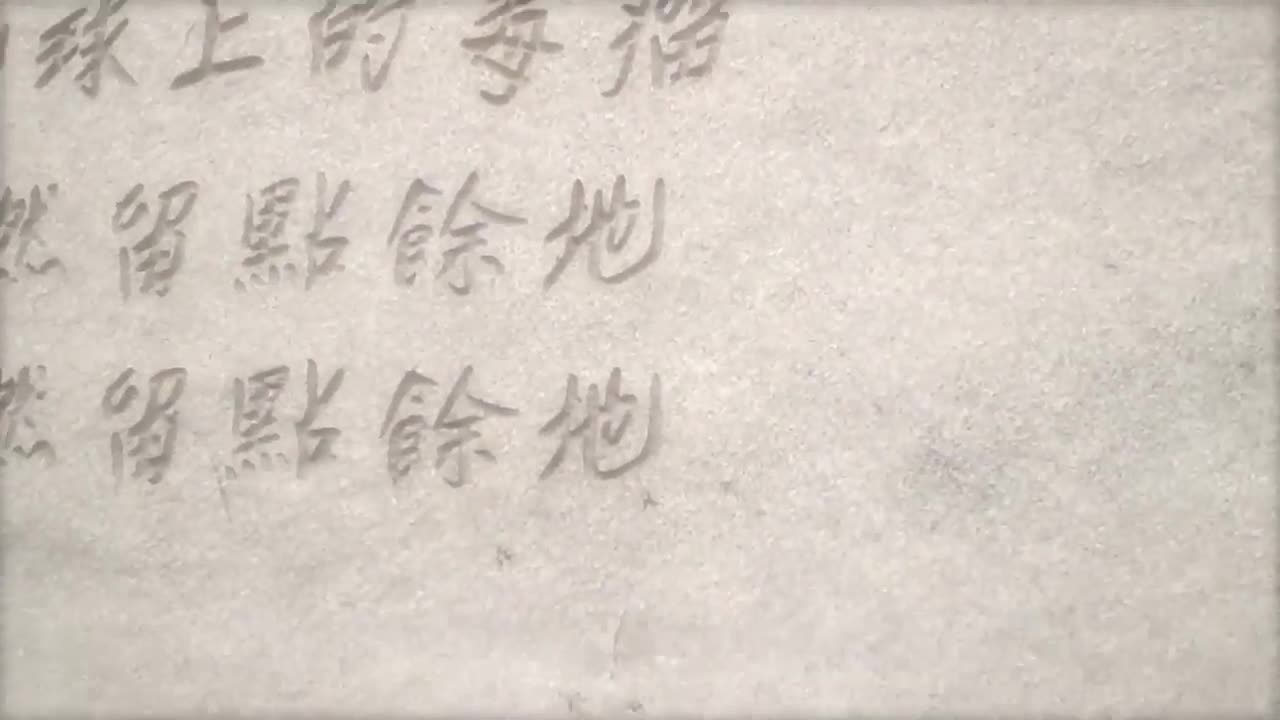 線上的每
然留點餘地
然留點餘地